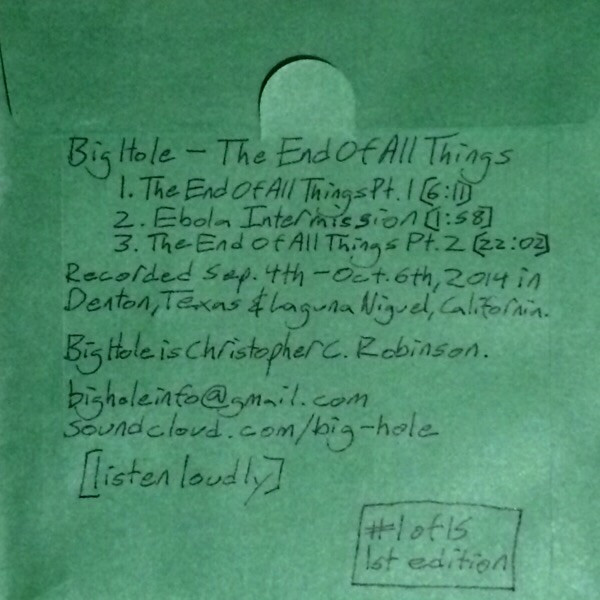 Big Hole – The End Of All Things
1. The End Of All Things Pt. 1 [6:11]
2. Ebola Intermission [1:58]
3. The End Of All Things Pt. 2 [22:02]
Recorded Sep. 4th – Oct. 6th, 2014 in
Denton, Texas & Laguna Niguel, California.
Big Hole is Christopher C. Robinson.
bigholeinfo@gmail.com
soundcloud.com/big-hole
[listen loudly]
#1 of 15
1st edition